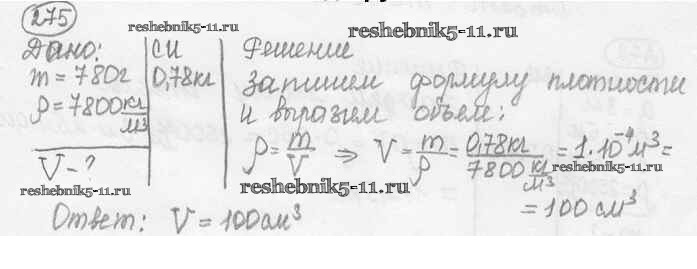 275
reshebnik5-11.ru
reshebnik5-11.ru
Дано:
СИ
Решение
m = 780г
0,78кг
ρ = 7800 кг/м³
V - ?
Запишем формулу плотности
и выразим объем:
ρ = m/V ⇒ V = m/ρ = 0,78кг / 7800 кг/м³ = 1·10⁻⁴ м³ =
= 100 см³
reshebnik5-11.ru
reshebnik5-11.ru
reshebnik5-11.ru
Ответ: V = 100 см³